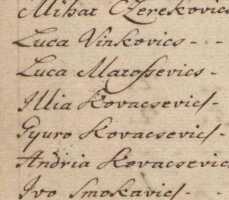 Mihat Czerekovics
Luca Vinkovics -
Luca Matossevics -
Illia Kovacsevics -
Gyuro Kovacsevics -
Andria Kovacsevics
Ivo Smokavics -